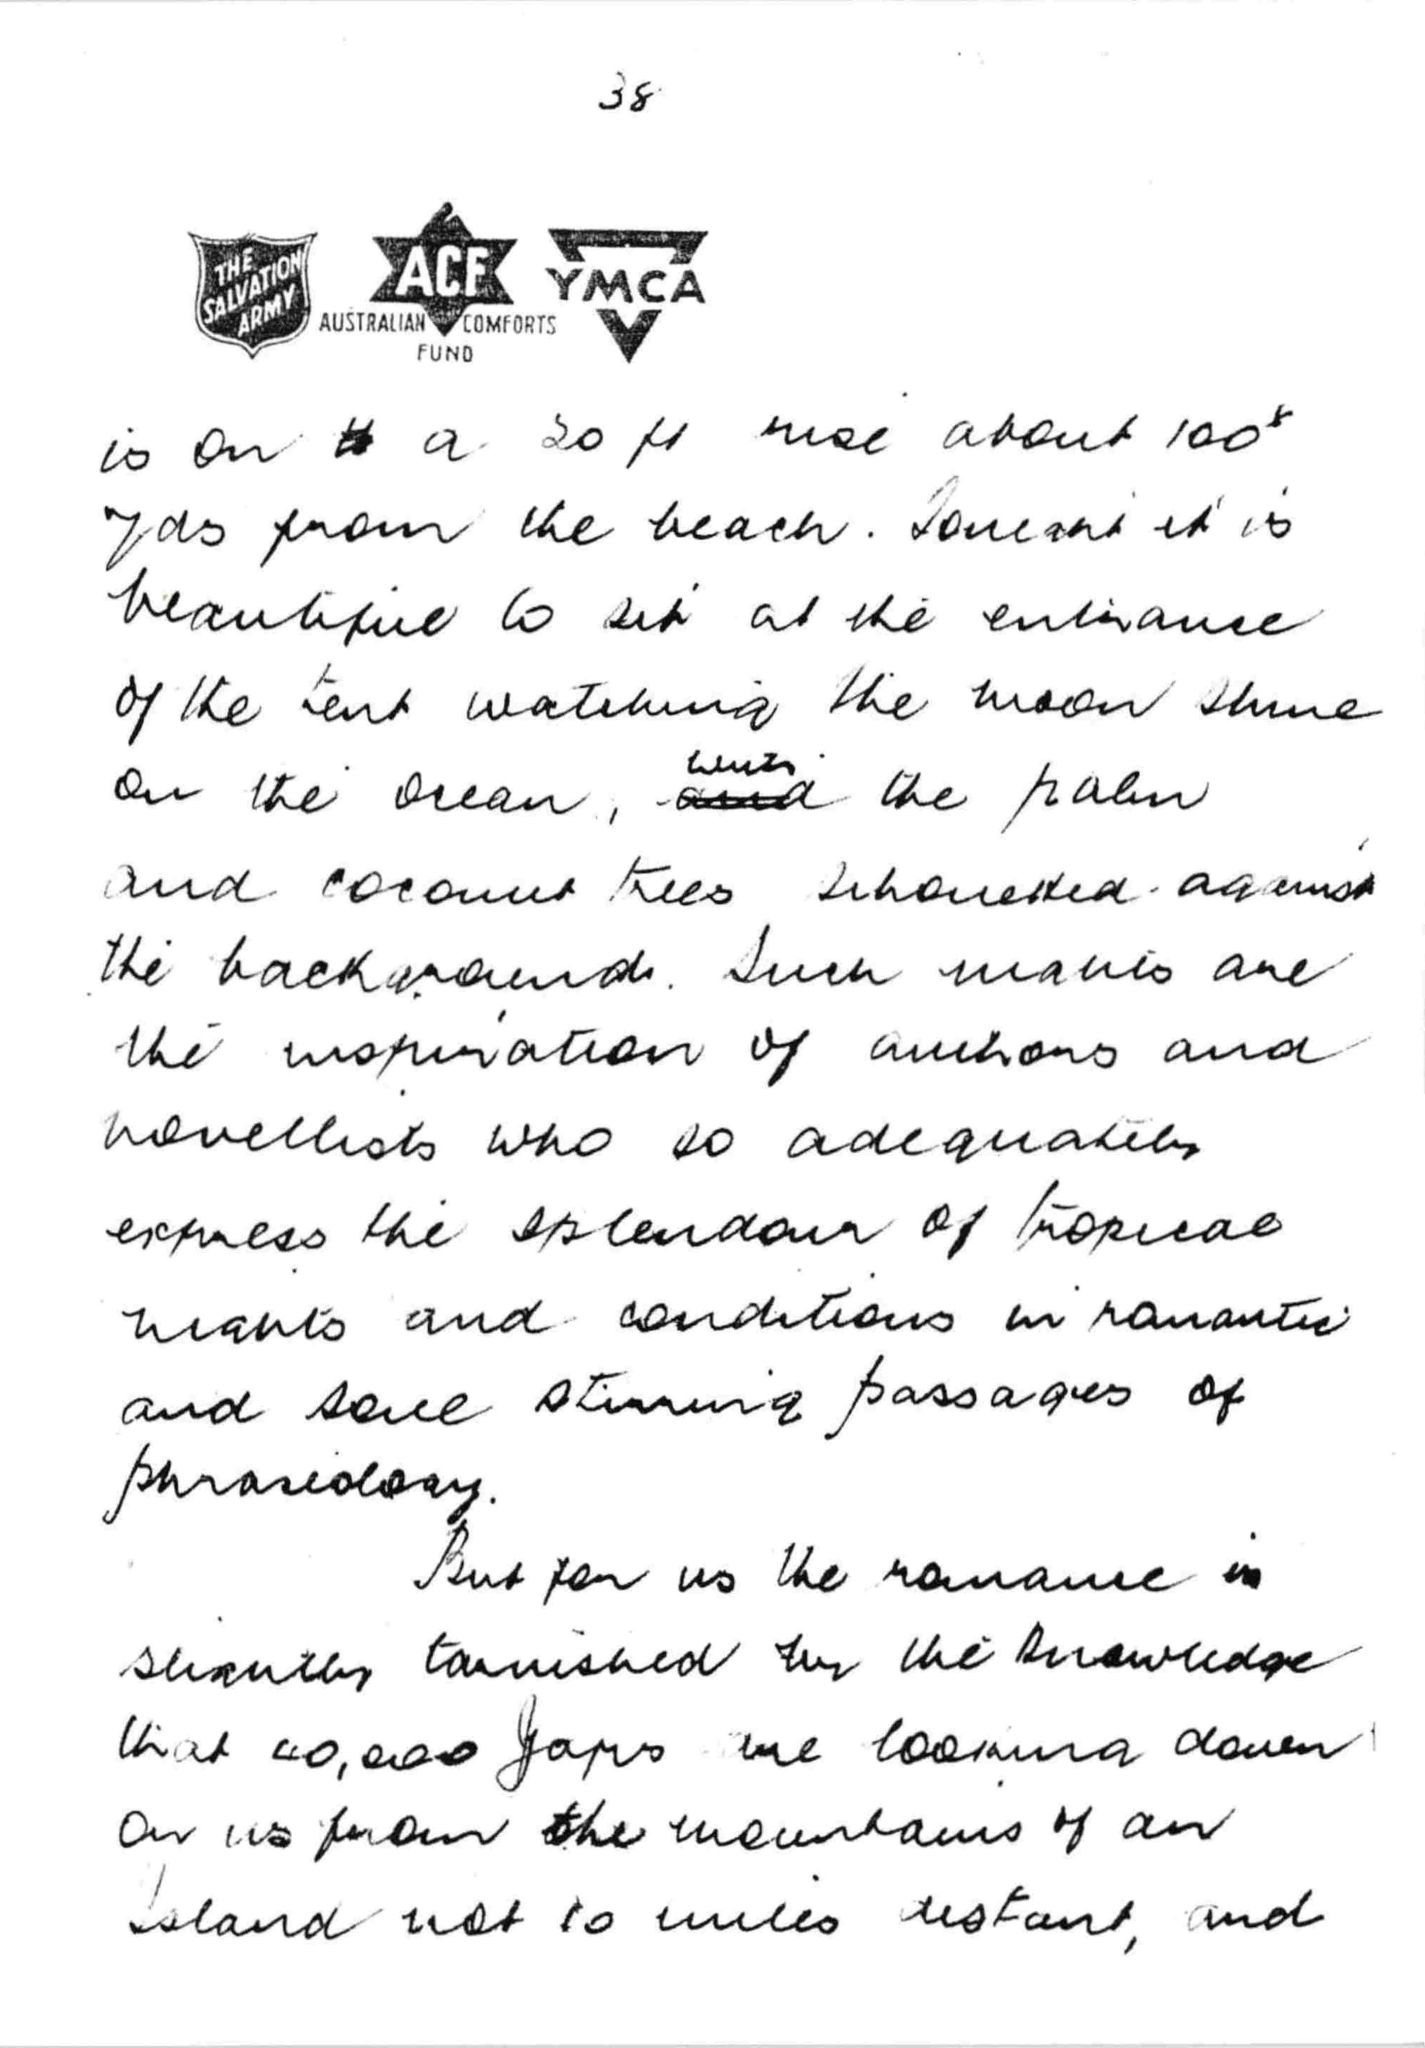 38
THE SALVATION ARMY
ACF
AUSTRALIAN COMFORTS FUND
YMCA
is on a 20 ft rise about 100s
yds from the beach. Tonight it is
beautiful to sit at the entrance
of the tent watching the moon shine
on the ocean, with the palm
and coconut trees silhouetted against
the background. Such nights are
the inspiration of authors and
novellists who so adequately
express the splendour of tropical
nights and conditions in romantic
and soul stirring passages of
phraseology.
But for us the romance is
slightly tarnished by the knowledge
that 40,000 Japs are looking down
on us from the mountains of an
Island not 10 miles distant, and